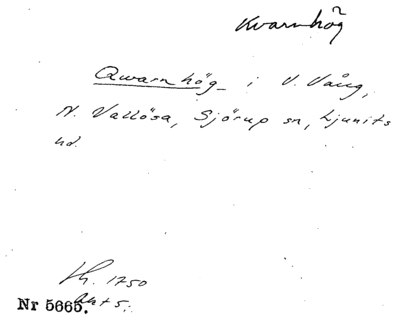 Kvarnhög
Qwarnhög i V. Vång,
N. Vallösa, Sjörup sn, Ljunits
hd.
Lh. 1750
Akt 5.
Nr 5665.